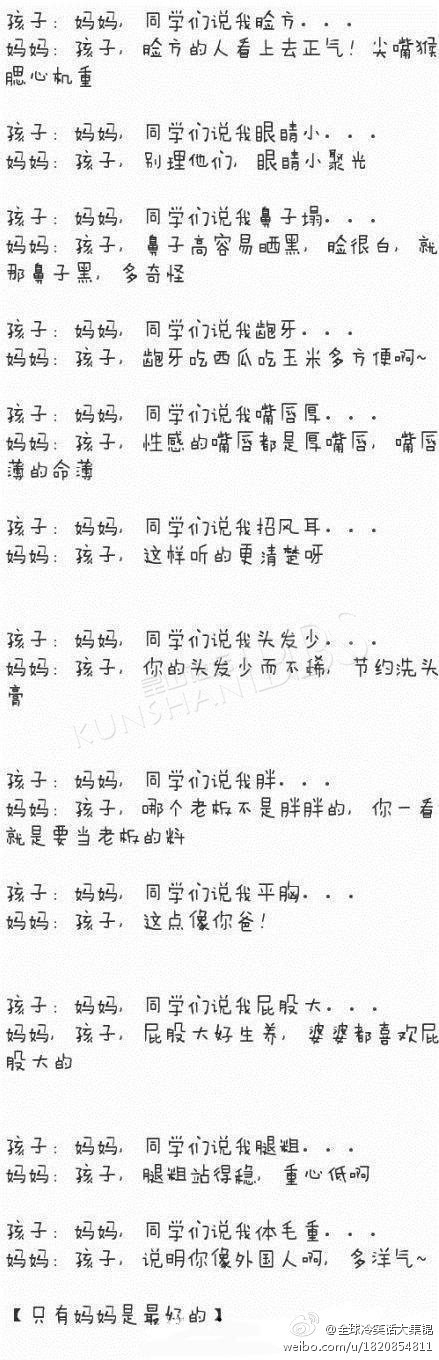 孩子：妈妈，同学们说我脸方...
妈妈：孩子，脸方的人看上去正气！尖嘴猴
腮心机重
孩子：妈妈，同学们说我眼睛小...
妈妈：孩子，别理他们，眼睛小聚光
孩子：妈妈，同学们说我鼻子塌...
妈妈：孩子，鼻子高容易晒黑，脸很白，就
那鼻子黑，多奇怪
孩子：妈妈，同学们说我龅牙...
妈妈：孩子，龅牙吃西瓜吃玉米多方便啊~
孩子：妈妈，同学们说我嘴唇厚...
妈妈：孩子，性感的嘴唇都是厚嘴唇，嘴唇
薄的命薄
孩子：妈妈，同学们说我招风耳...
妈妈：孩子，这样听的更清楚呀
孩子：妈妈，同学们说我头发少...
妈妈：孩子，你的头发少而不稀，节约洗头
膏
KUNSHAN
孩子：妈妈，同学们说我胖...
妈妈：孩子，哪个老板不是胖胖的，你一看
就是要当老板的料
孩子：妈妈，同学们说我平胸...
妈妈：孩子，这点像你爸！
孩子：妈妈，同学们说我屁股大...
妈妈，孩子，屁股大好生养，婆婆都喜欢屁
股大的
孩子：妈妈，同学们说我腿粗...
妈妈：孩子，腿粗站得稳，重心低啊
孩子：妈妈，同学们说我体毛重...
妈妈：孩子，说明你像外国人啊，多洋气~
【只有妈妈是最好的】
@全球冷笑话大集锦
weibo.com/u/1820854811